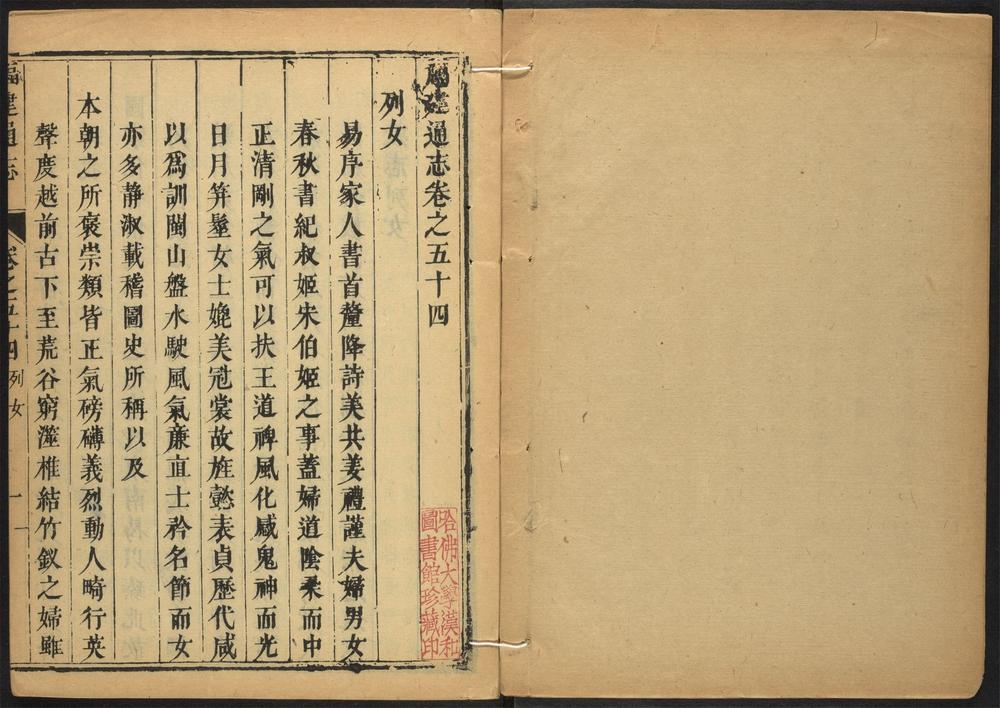 福建通志卷之五十四
列女
易序家人書首釐降詩美共姜禮謹夫婦男女
春秋書紀叔姬宋伯姬之事蓋婦道陰柔而中
正清剛之氣可以扶王道裨風化感鬼神而光
日月笄髽女士媲美冠裳故旌懿表貞歷代咸
以爲訓閩山盤水駛風氣亷直士衿名節而女
亦多靜淑載稽圖史所稱以及
本朝之所褒崇類皆正氣磅礴義烈動人畸行英
聲度越前古下至荒谷窮澨椎結竹釵之婦雖
福建通志
卷之五十四
列女
一
哈佛大學漢和
圖書館珍藏印